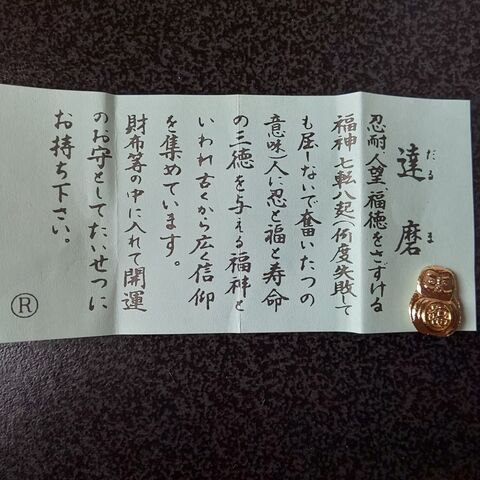 達磨
だるま
忍耐、人望、福徳をさずける
福神七転八起(何度失敗して
も屈しないで奮いたつの
意味)人に忍と福と寿命
の三徳を与える福神と
いわれ古くから広く信仰
を集めています。
財布等の中に入れて開運
のお守としてたいせつに
お持ち下さい。
Ⓡ